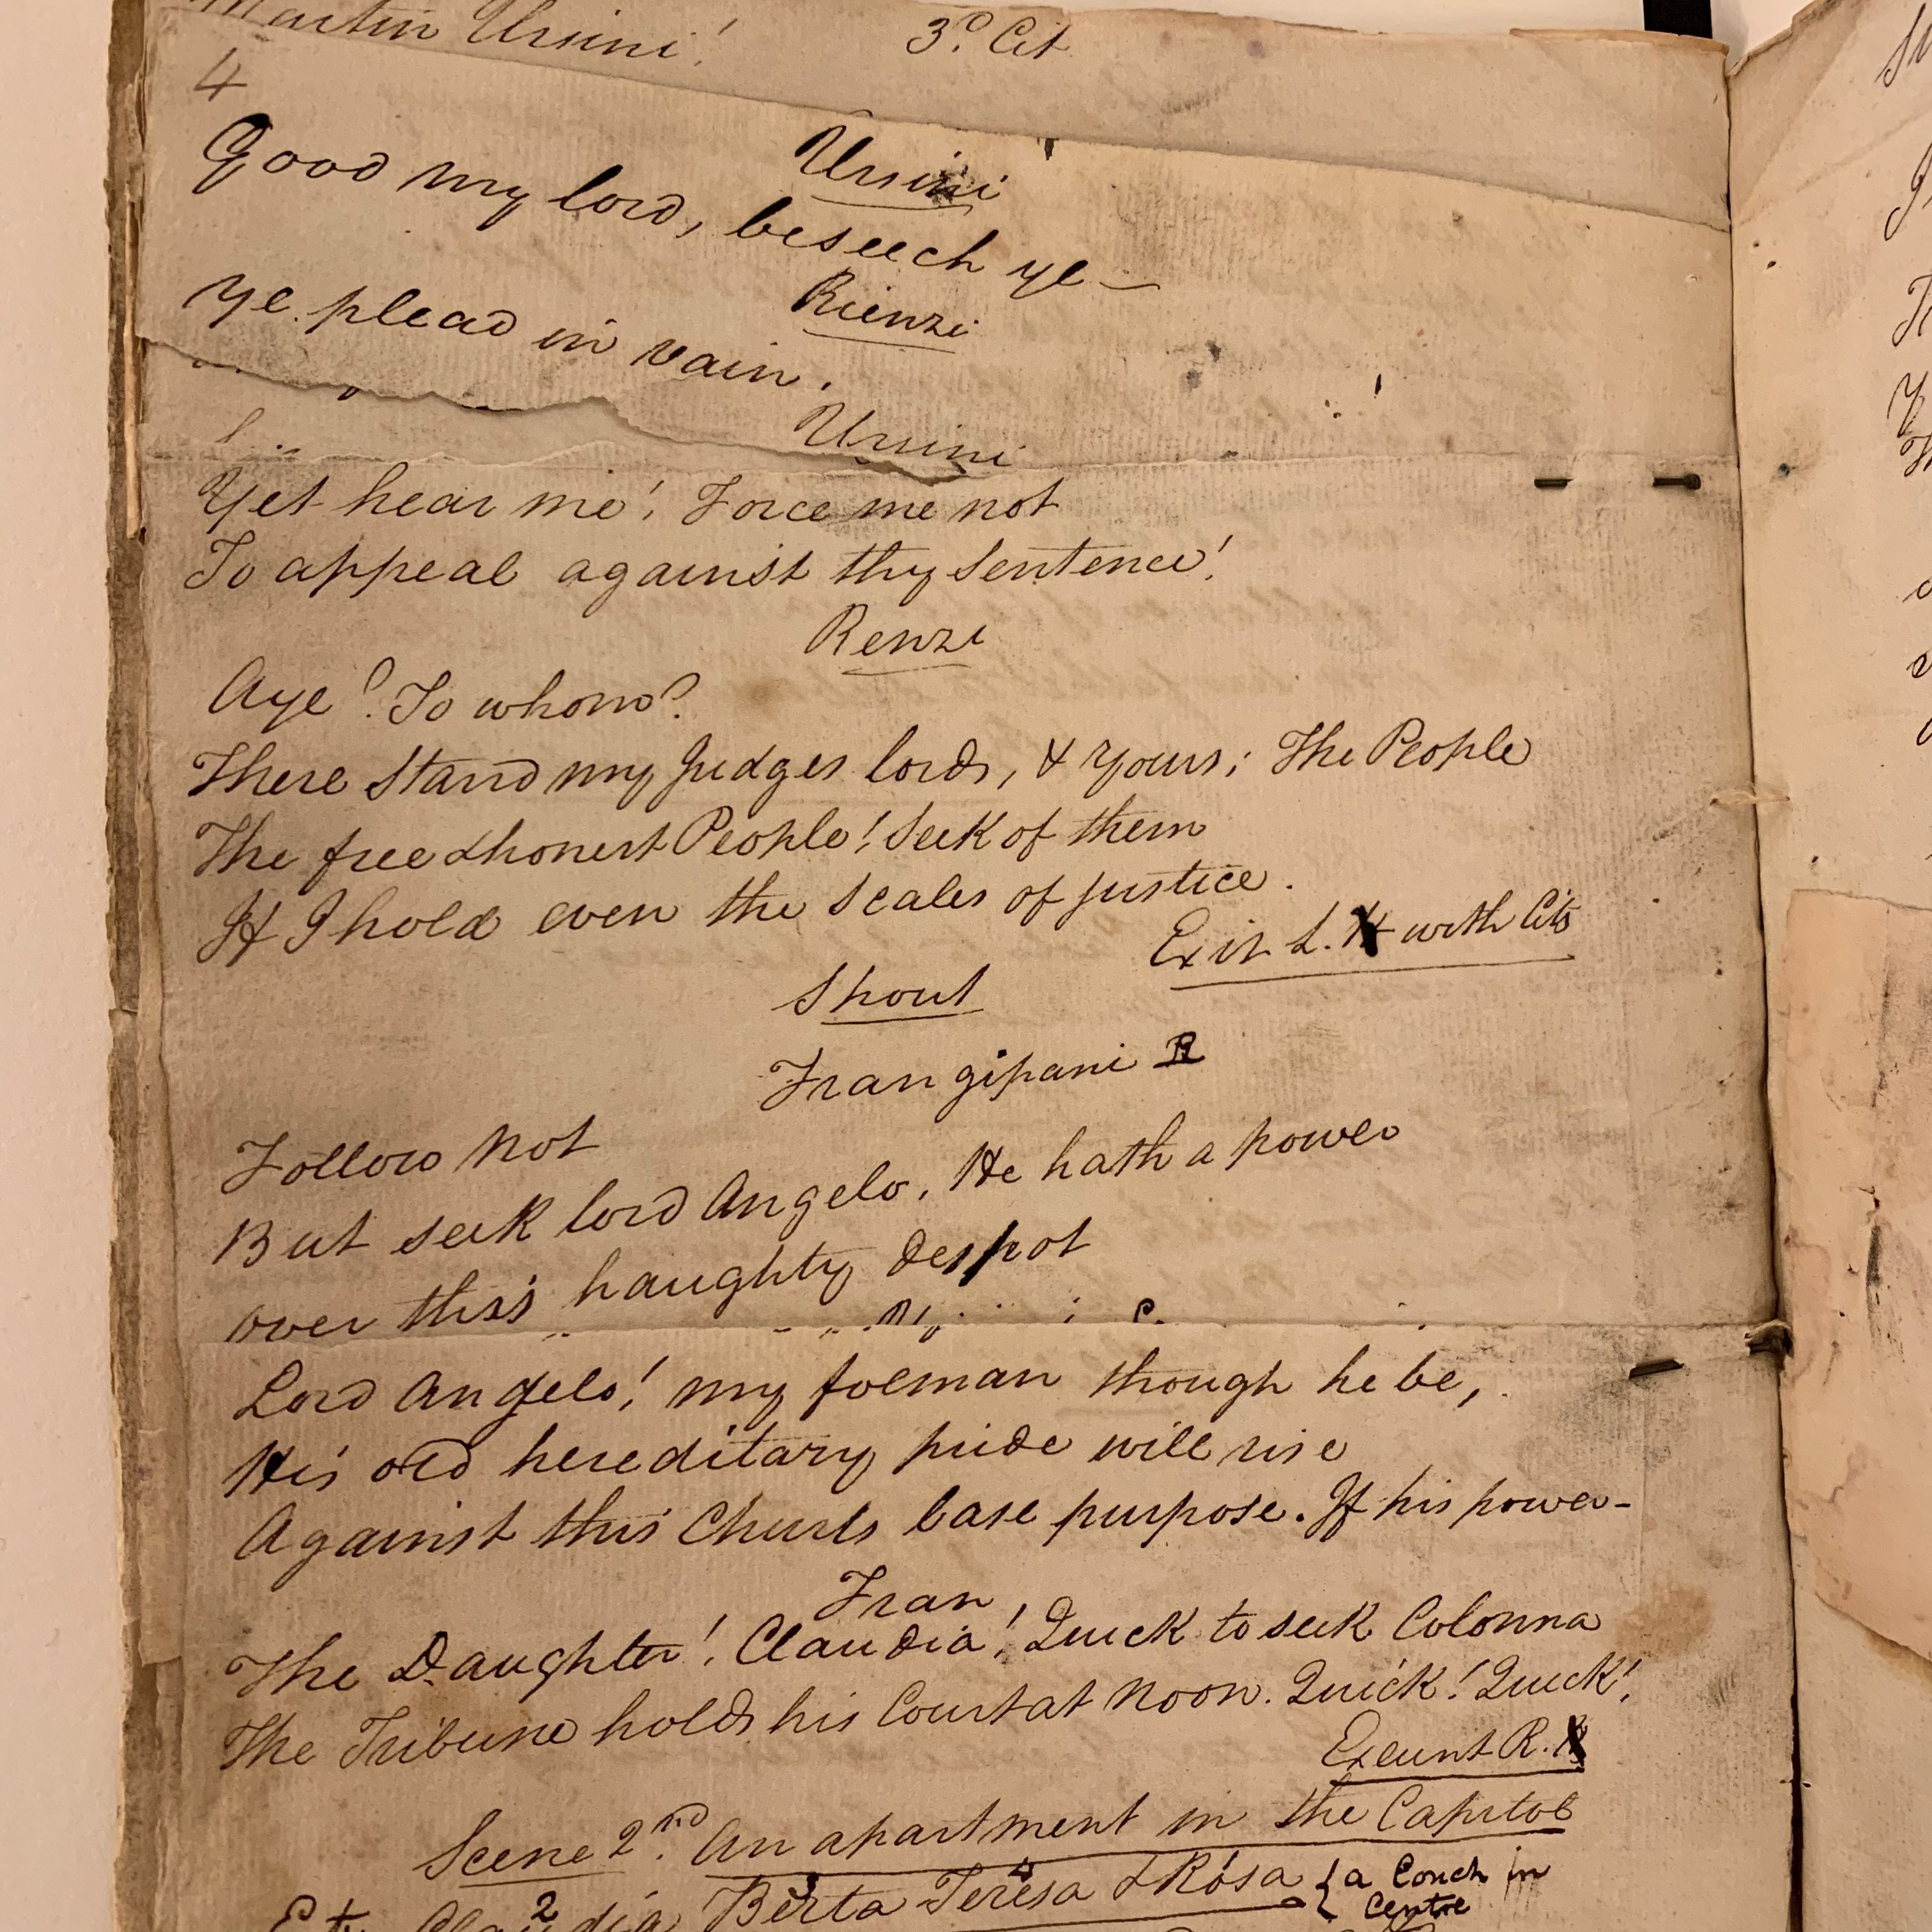 Martin Ursini! 3.d Cit
4
Ursini
Good my lord, beseech ye—
Rienzi
Ye plead in vain.
Ursini
Yet hear me! Force me not
To appeal against thy sentence!
Renzi
Aye? To whom?
There stand my Judges lords, & yours; The People
The free & honest People! Seek of them
If I hold even the scales of justice.
Exit L. with Cits
Shout
Frangipani R
Follow not
But seek lord Angelo. He hath a power
over this haughty despot
Lord Angelo! my foeman though he be,
His old hereditary pride will rise
Against this Churls base purpose. If his power-
Fran,
The Daughter! Claudia! Quick to seek Colonna
The Tribune holds his Court at Noon. Quick! Quick!
Exeunt R.
Scene 2nd. An apartment in the Capitol
2 3 4
Claudia Berta Teresa & Rosa { a Couch in
Centre